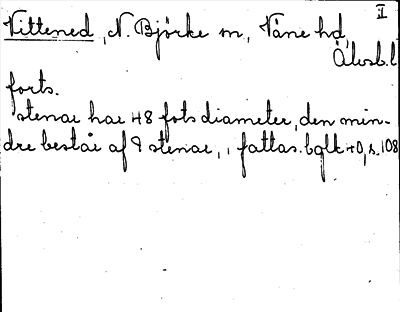 II
Vittened, N. Björke sn, Väne hd,
Älvsb. l
forts.
stenar har 48 fots diameter, den min-
dre består af 9 stenar, 1 fattas. bglt 40, s. 108